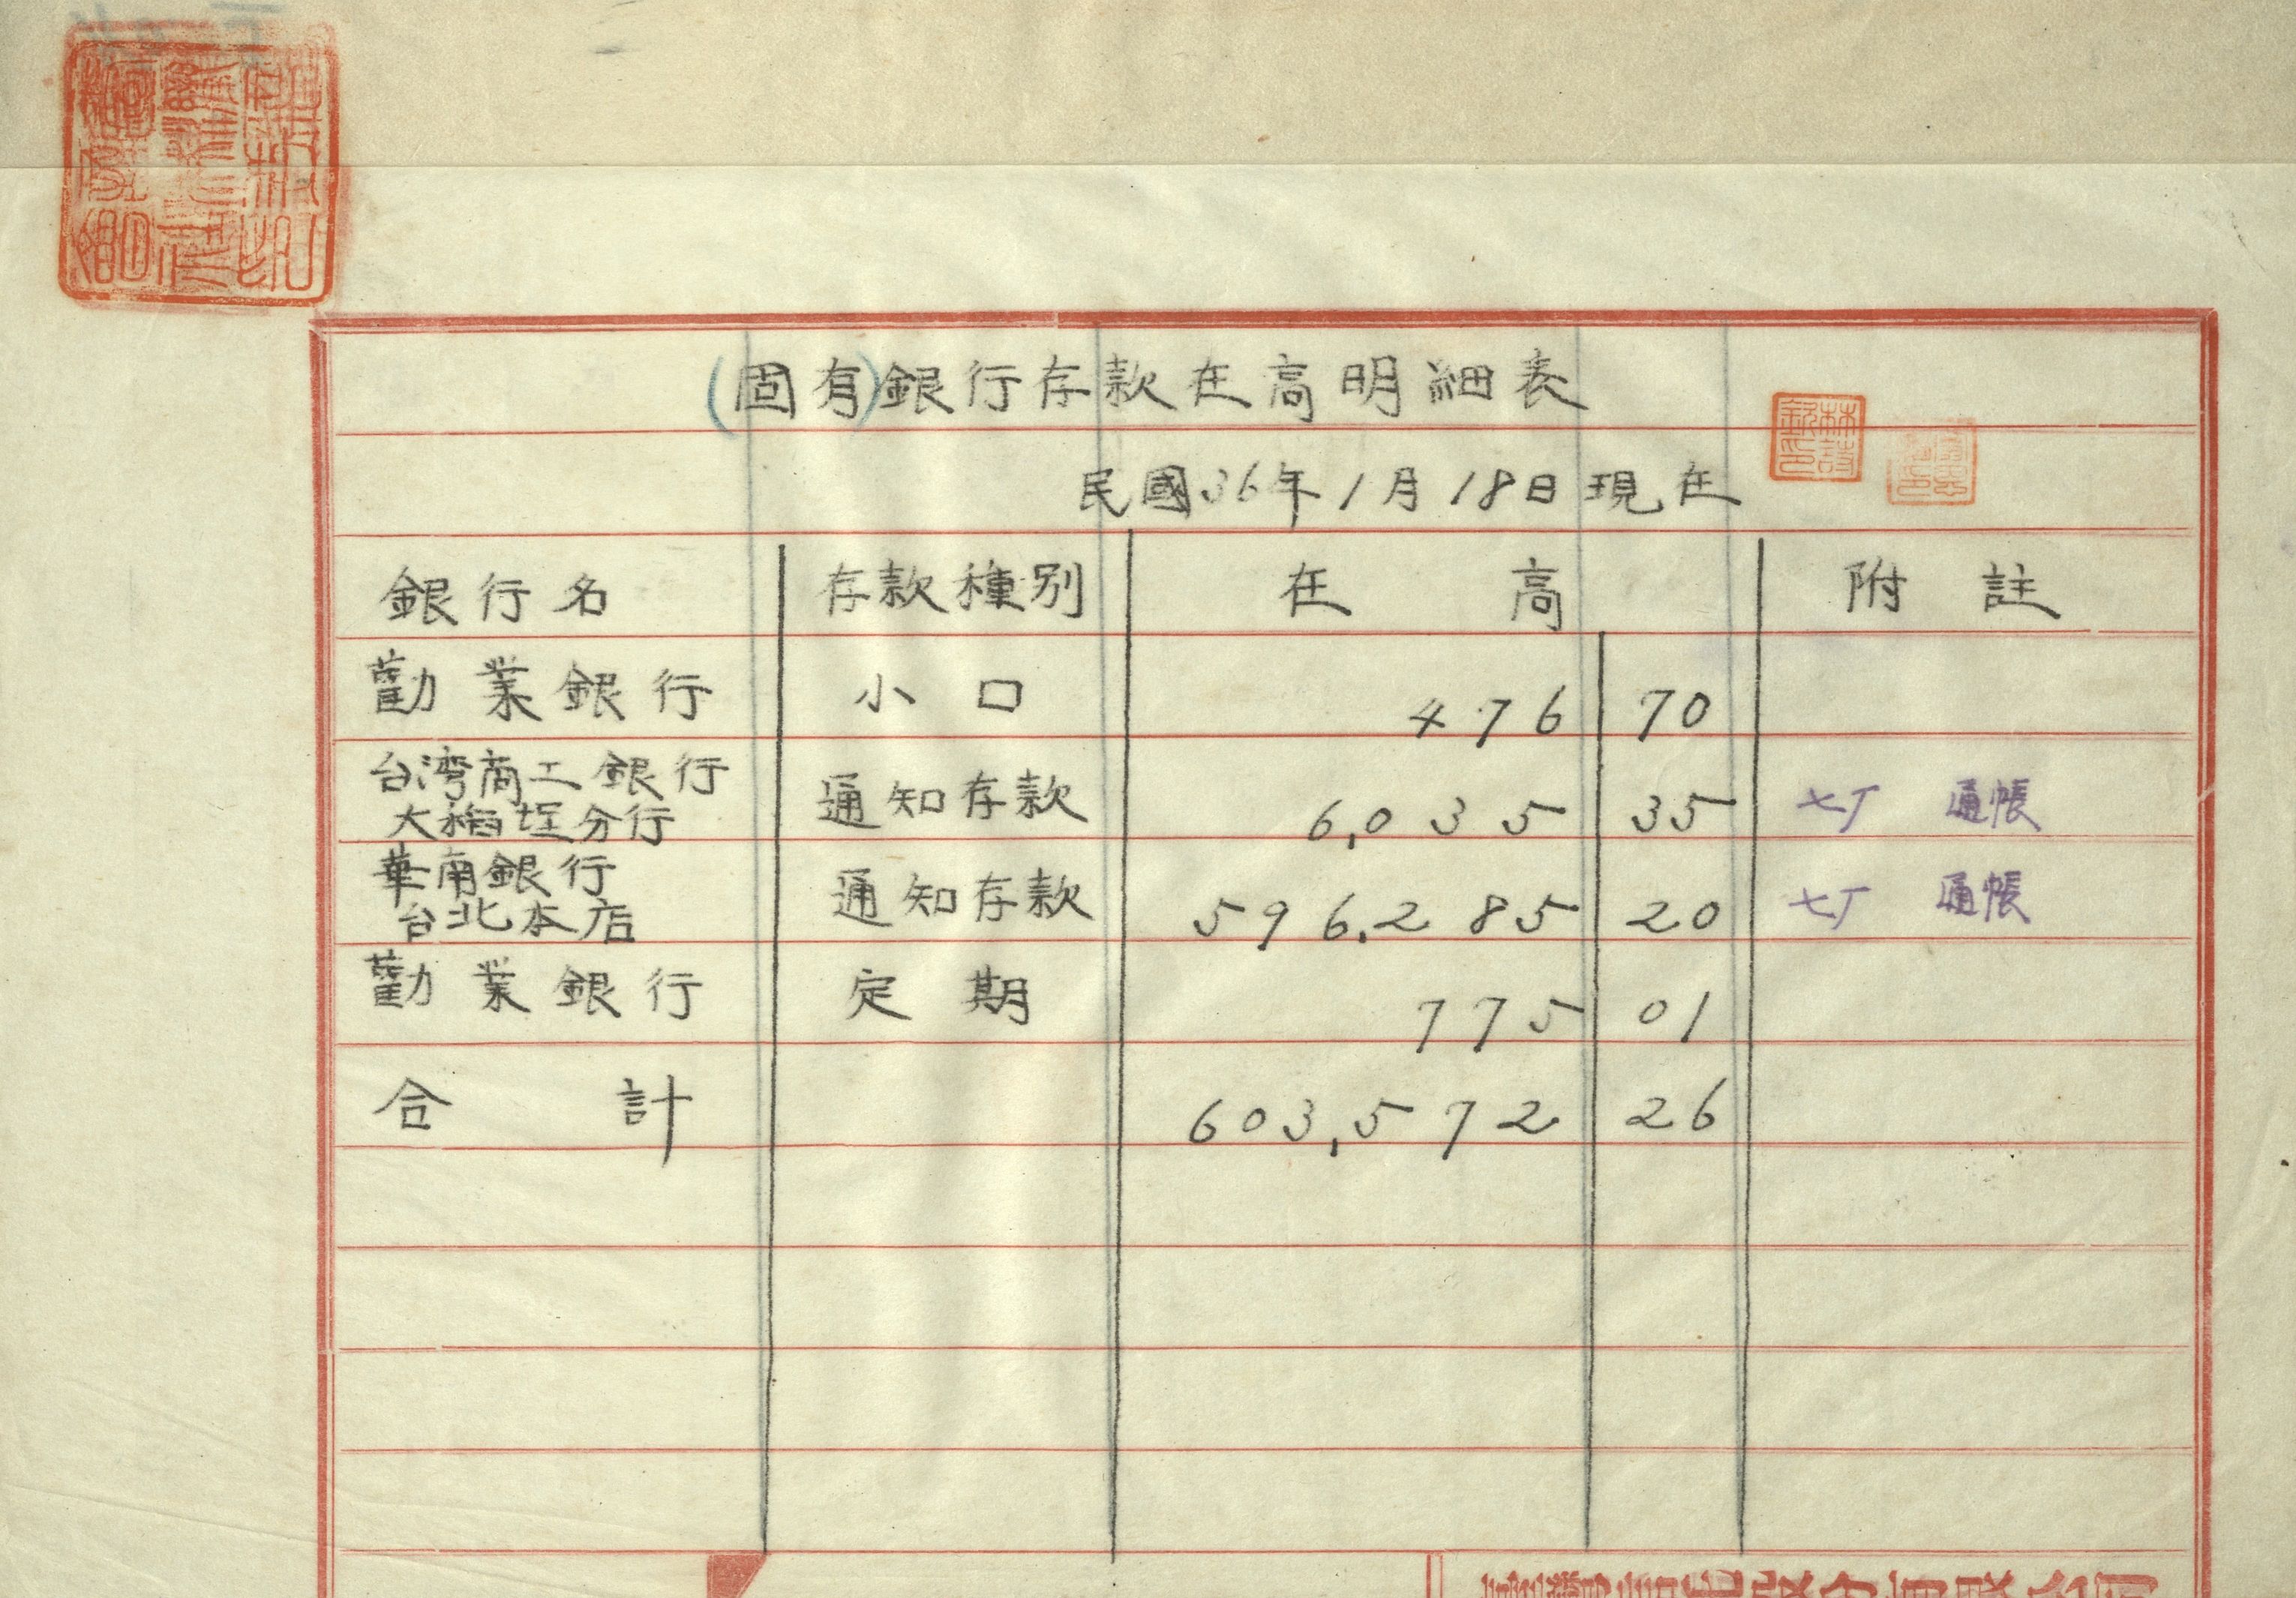 (固有)銀行存款在高明細表
民國36年1月18日現在
銀行名 存款種別 在高 附註
勸業銀行 小口 476 70
台湾商工銀行
大稻埕分行 通知存款 6,035 35 通帳
華南銀行
台北本店 通知存款 596,285 20 通帳
勸業銀行 定期 775 01
合計 603,572 26
林詩欽印